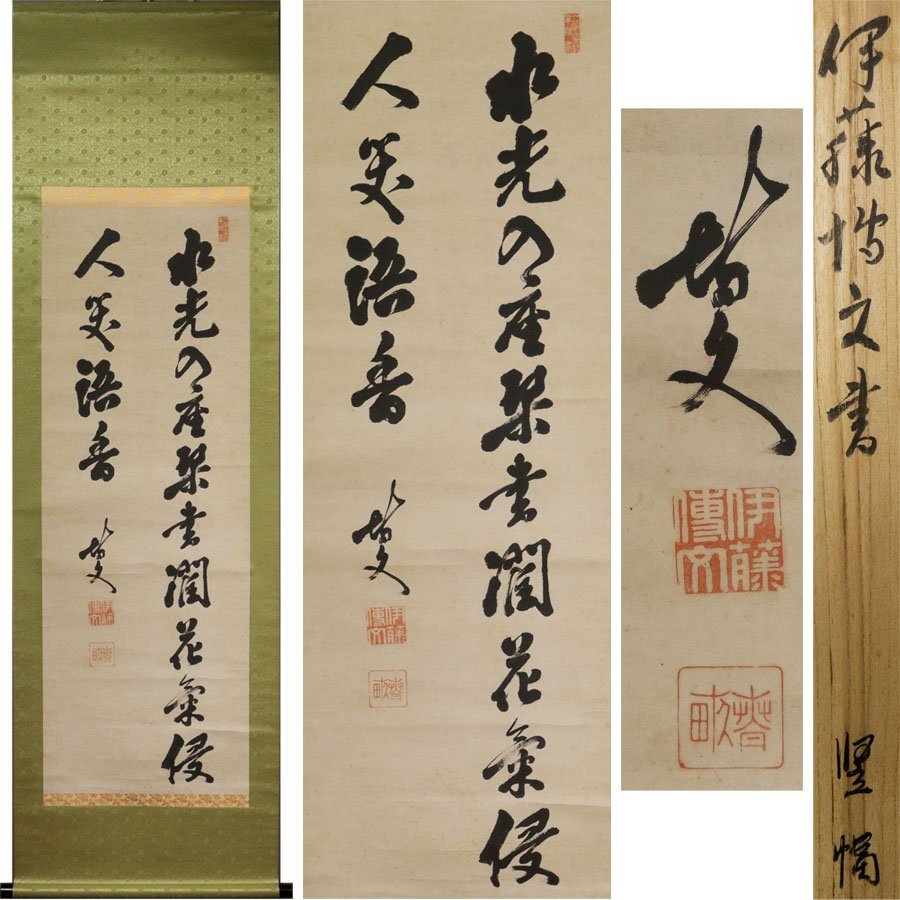 水光入座琴書潤花氣侵
人笑語香
博文
伊藤博文
春畝
水光入座琴書潤花氣侵
人笑語香
博文
伊藤博文
春畝
博文
伊藤博文
春畝
伊藤博文書 竪幅